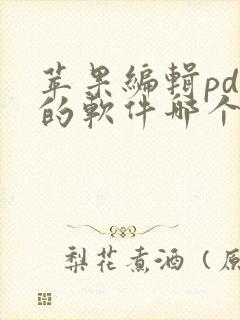 苹果编辑pd
的软件哪个
梨花煮酒（原